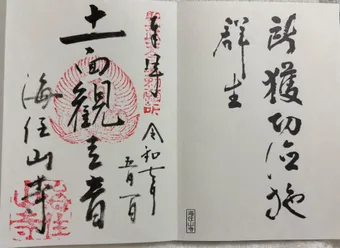 所獲功徳施
群生
奉拝
令和七年
五月一日
十一面観音
海住山寺
海住山寺